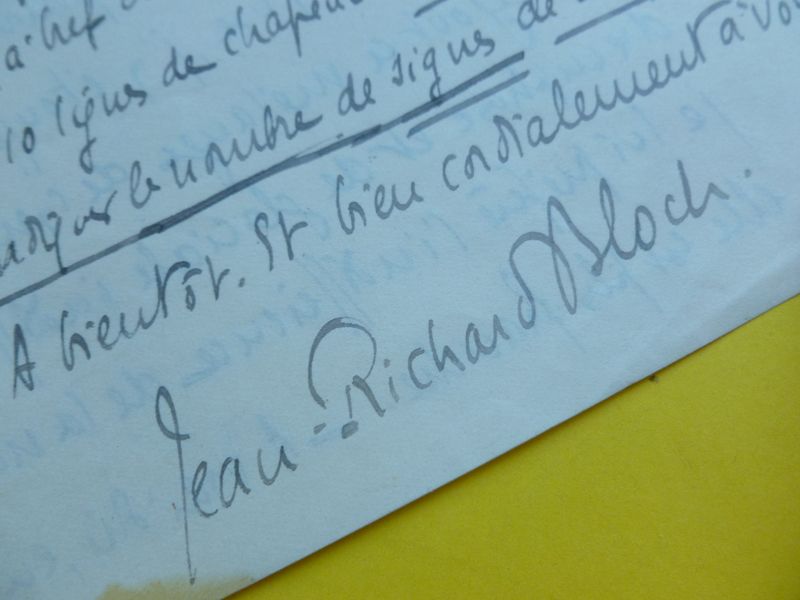 10 lignes de chapeau
indiquer le nombre de signes de
A bientôt. Et bien cordialement à vous
Jean-Richard Bloch.